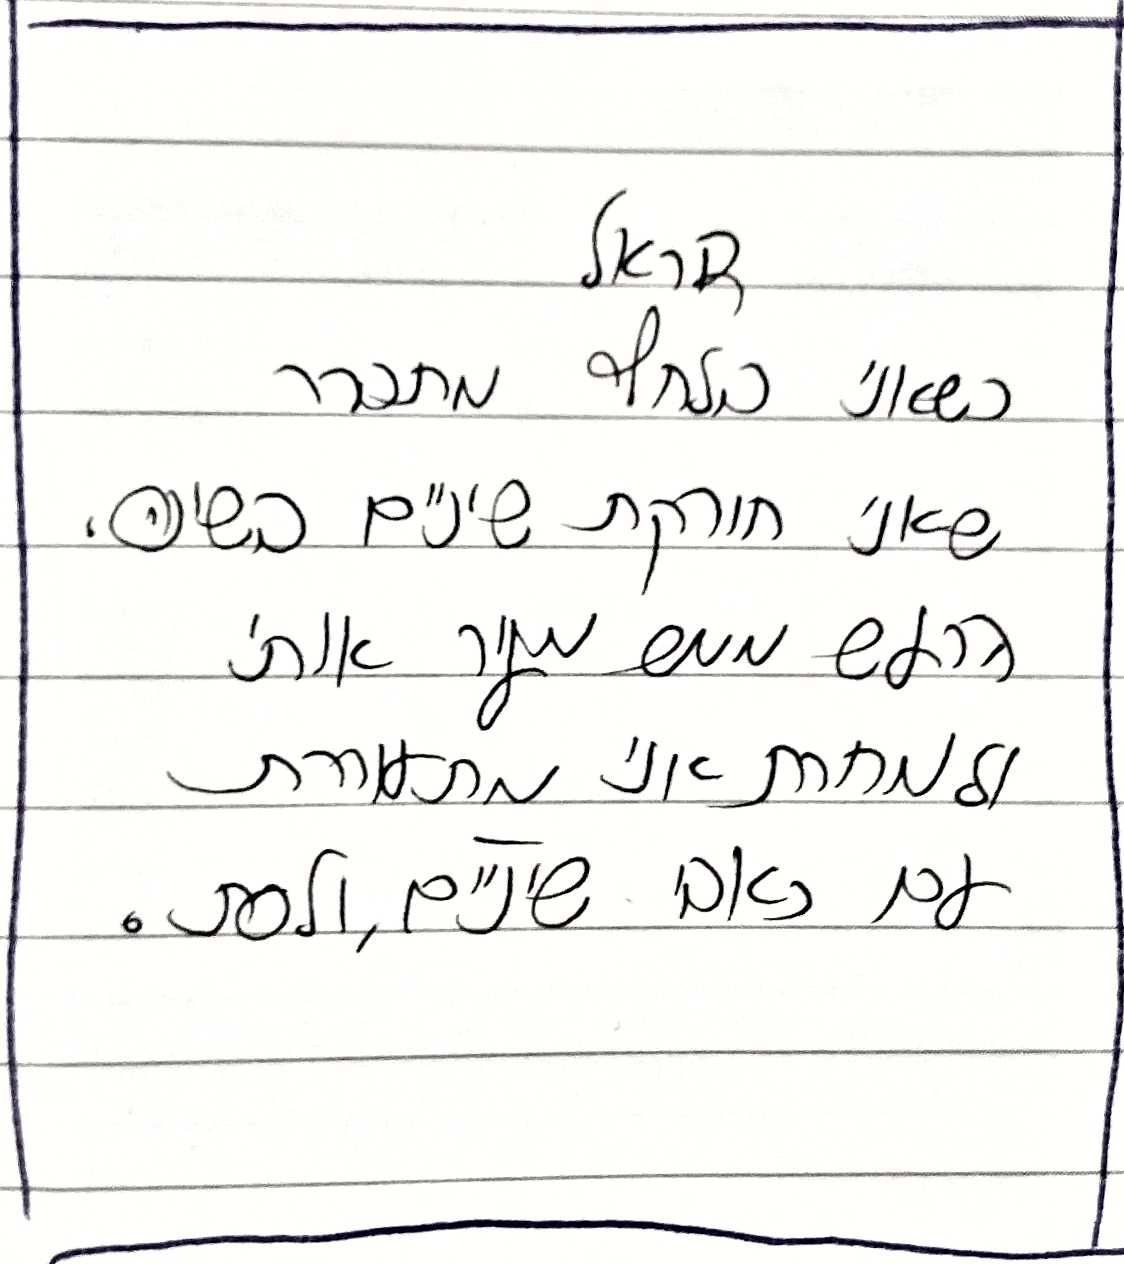 הראל
כשאני בלחץ מתברר
שאני חורקת שיניים בשינה.
הרעש ממש מעיר אותי
ולמחרת אני מתעוררת
עם כאבי שיניים, ולסת.